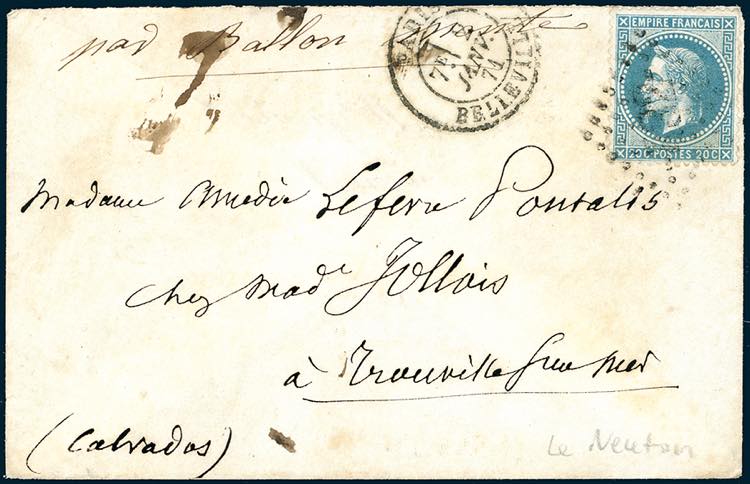 par Ballon monté
PARIS BELLEVILLE
7E JANV. 71
EMPIRE FRANÇAIS
20C POSTES 20C
Madame Amédée Lefevre Pontalis
chez Made Jollois
à Trouville sur mer
(Calvados)
Le Neuton